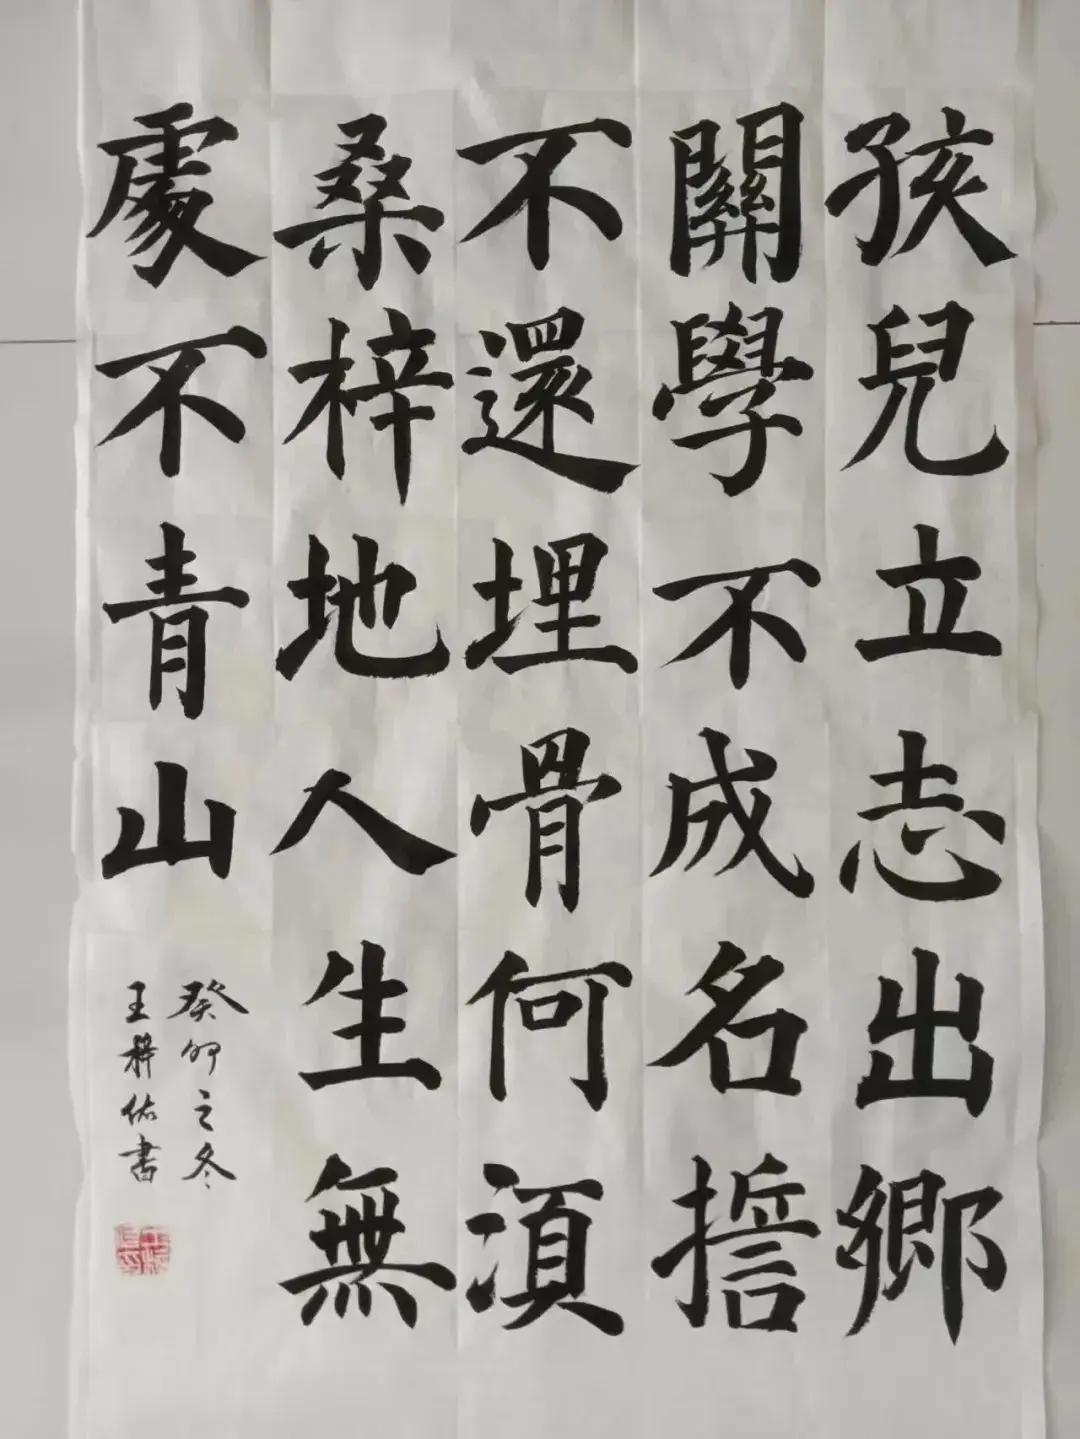 孩兒立志出鄉
關學不成名誓
不還埋骨何須
桑梓地人生無
處不青山
癸卯之冬
王梓佑書